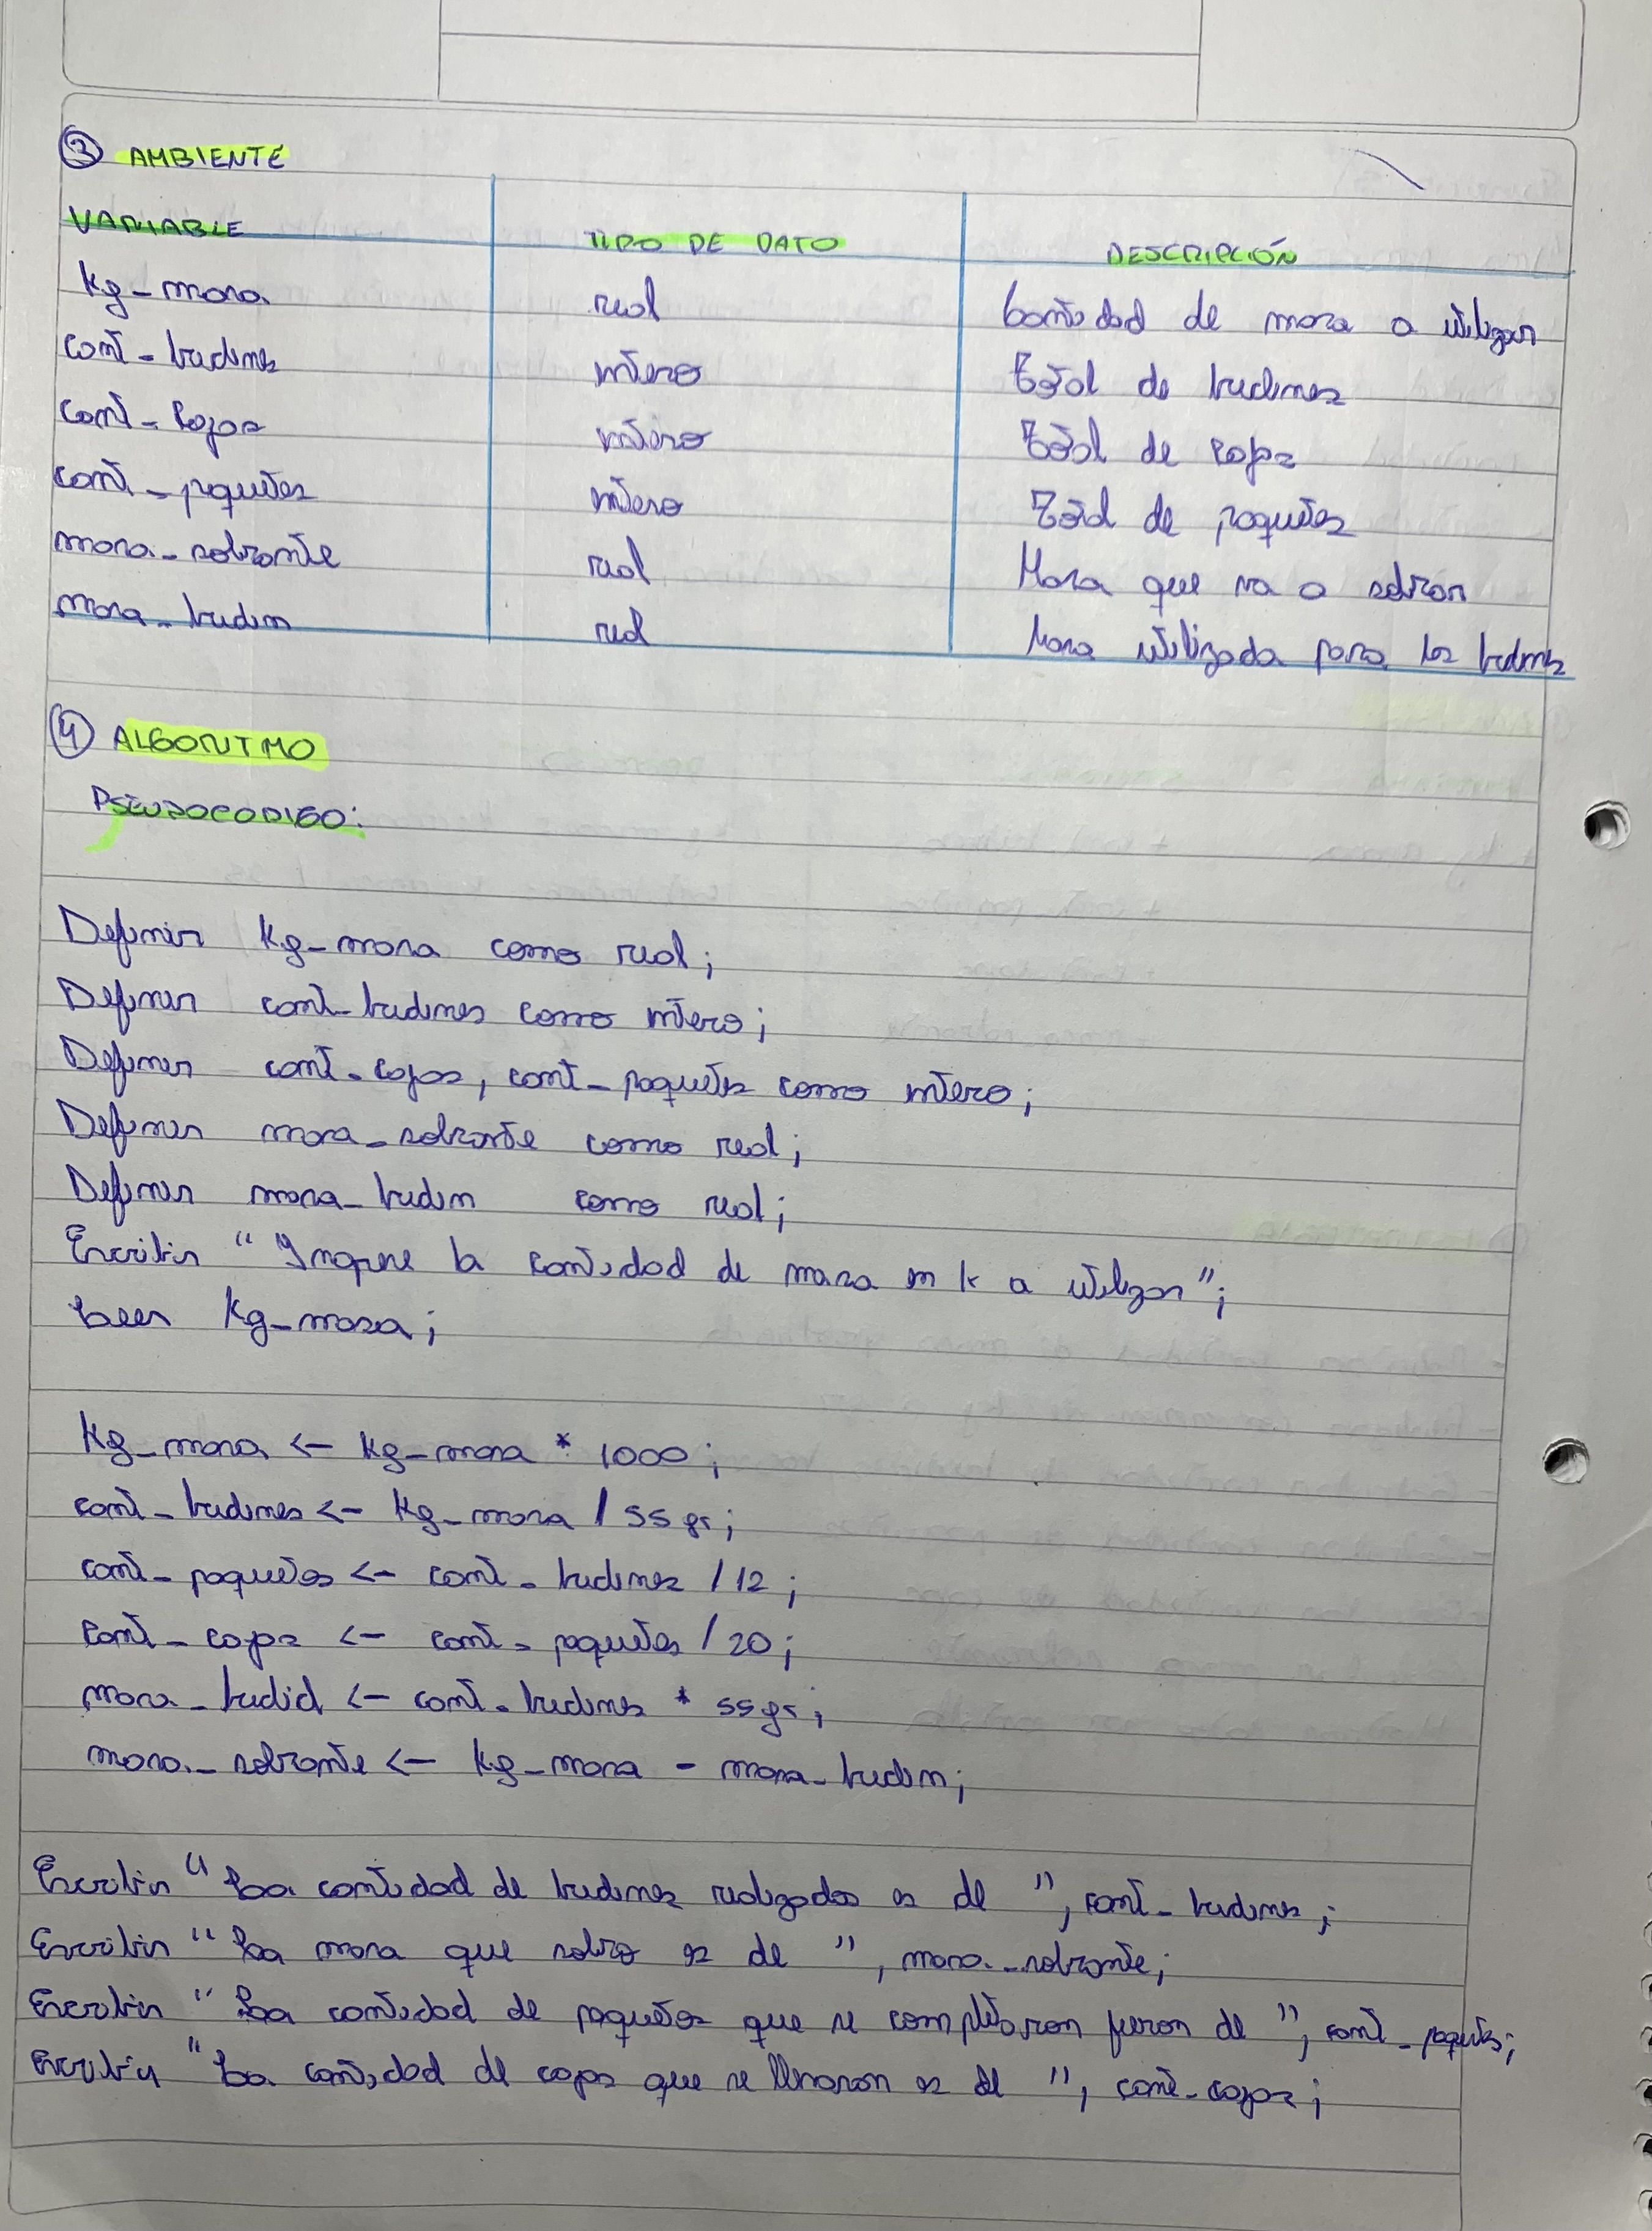 ③ AMBIENTE
VARIABLE TIPO DE DATO DESCRIPCIÓN
kg_masa real Cantidad de masa a utilizar
cant_budines entero Total de budines
cant_cajas entero Total de cajas
cant_paquetes entero Total de paquetes
masa_sobrante real Masa que va a sobrar
masa_budin real Masa utilizada para los budines
④ ALGORITMO
PSEUDOCODIGO:
Definir kg_masa como real;
Definir cant_budines como entero;
Definir cant_cajas, cant_paquetes como entero;
Definir masa_sobrante como real;
Definir masa_budin como real;
Escribir "Ingrese la cantidad de masa en k a utilizar";
Leer kg_masa;
kg_masa <- kg_masa * 1000;
cant_budines <- kg_masa / 55gr;
cant_paquetes <- cant_budines / 12;
cant_cajas <- cant_paquetes / 20;
masa_budid <- cant_budines * 55gr;
masa_sobrante <- kg_masa - masa_budin;
Escribir "La cantidad de budines realizados es de ", cant_budines;
Escribir "La masa que sobro es de ", masa_sobrante;
Escribir "La cantidad de paquetes que se completaron fueron de ", cant_paquetes;
Escribir "La cantidad de cajas que se llenaron es de ", cant_cajas;